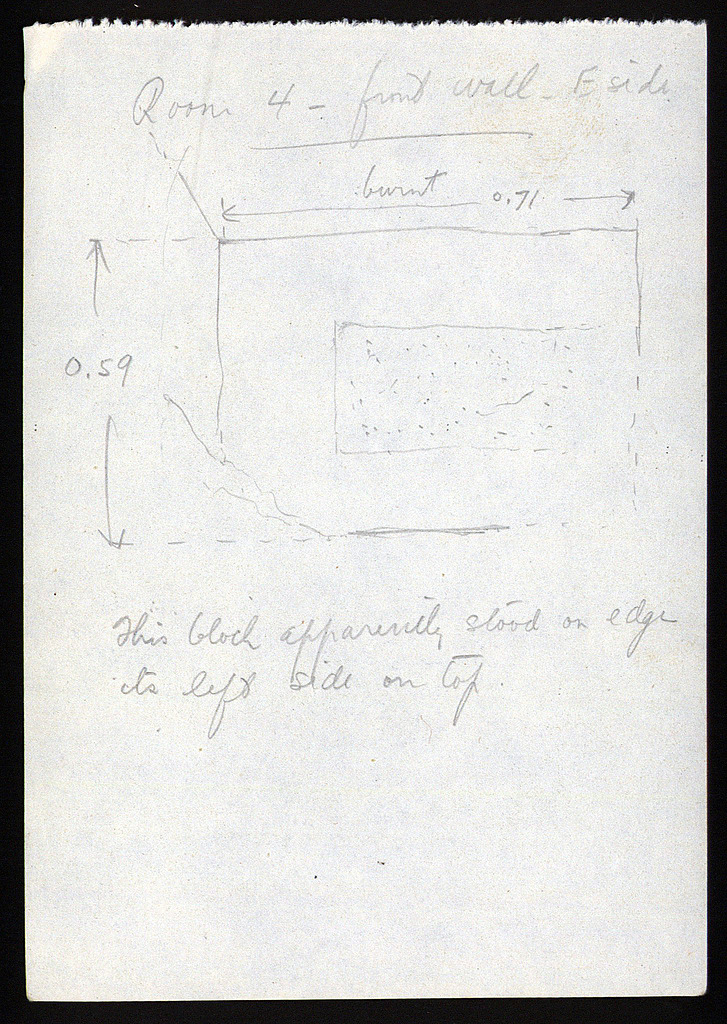 Room 4 - front wall - E side
burnt 0.71
0.59
This block apparently stood on edge
its left side on top.